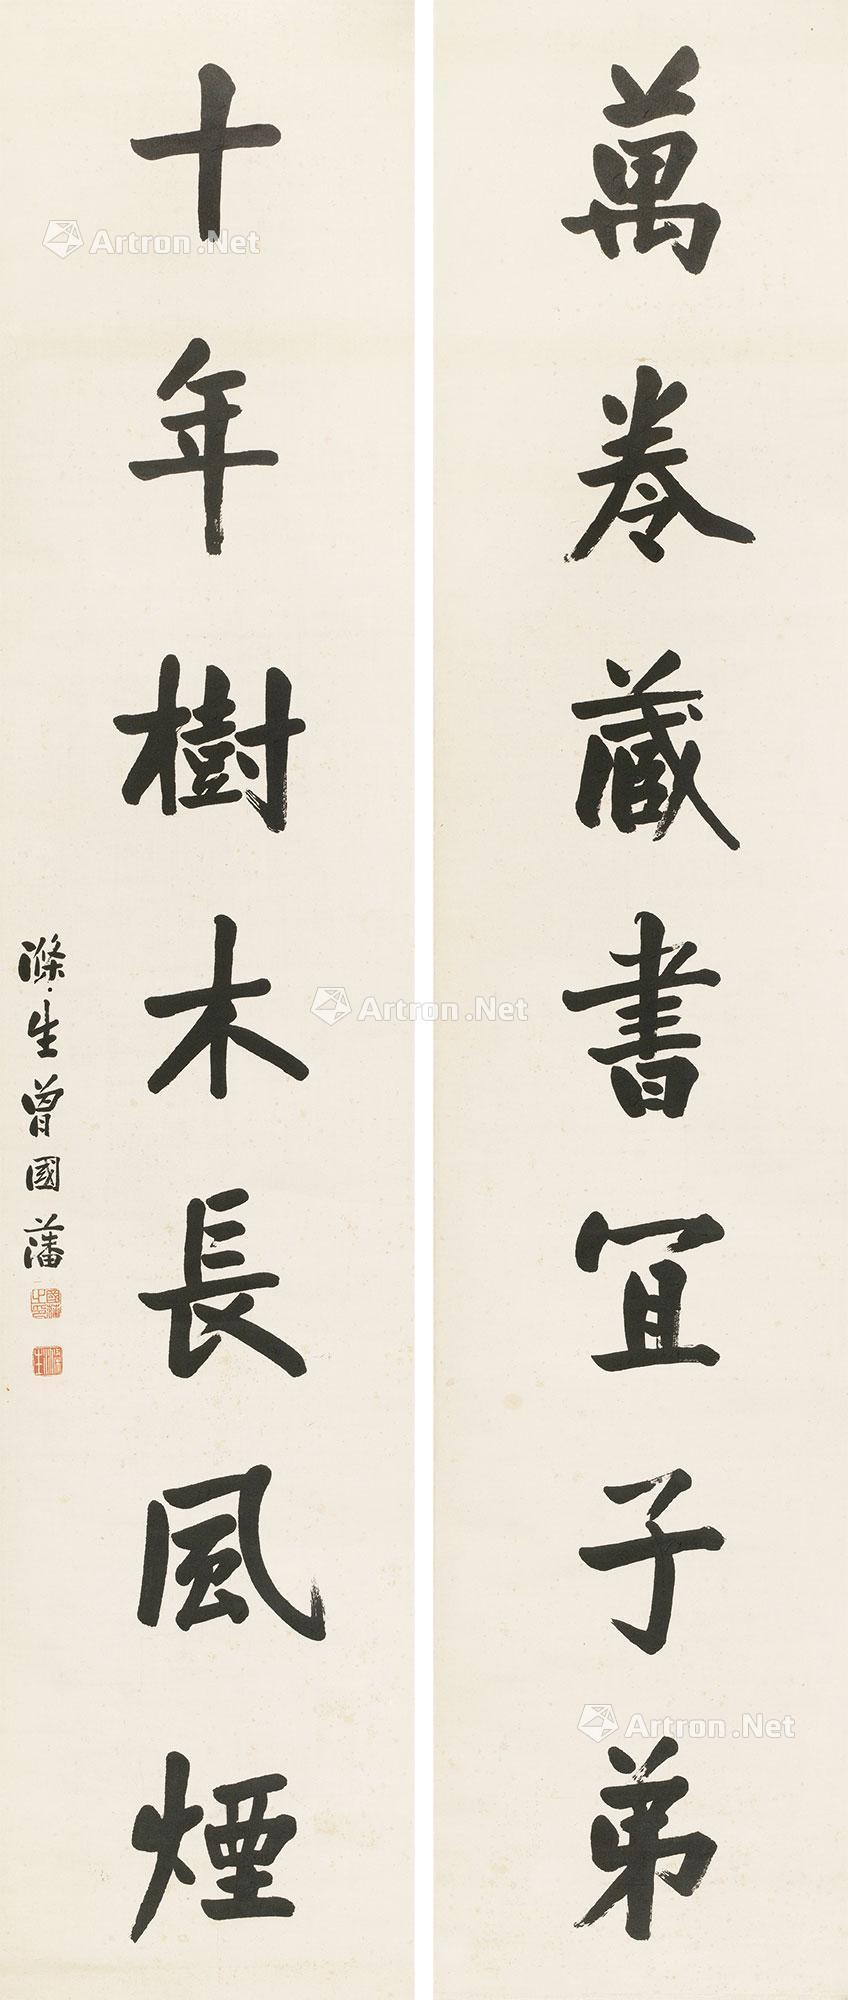 萬卷藏書宜子弟
十年樹木長風煙
滌生曾國藩
Artron.Net
Artron.Net
Artron.Net